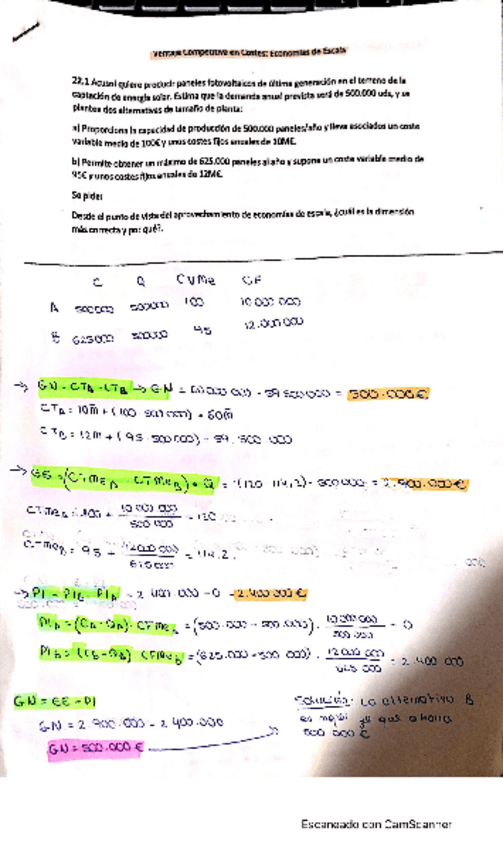 Ventaja Competitiva en Costes: Economías de Escala
22.1 Acusol quiere producir paneles fotovoltaicos de última generación en el terreno de la
captación de energía solar. Estima que la demanda anual prevista será de 500.000 uds, y se
plantea dos alternativas de tamaño de planta:
a) Proporciona la capacidad de producción de 500.000 paneles/año y lleva asociados un coste
variable medio de 100€ y unos costes fijos anuales de 10M€.
b) Permite obtener un máximo de 625.000 paneles al año y supone un coste variable medio de
95€ y unos costes fijos anuales de 12M€.
Se pide:
Desde el punto de vista del aprovechamiento de economías de escala, ¿cuál es la dimensión
más correcta y por qué?.
C Q CVMe CF
A 500000 500000 100 10 000 000
B 625000 500000 95 12.000 000
→ GN = CTA - CTB → GN = 60 000 000 - 59 500 000 = 500.000€
CTA = 10m + (100 · 500 000) = 60m
CTB = 12m + (95 · 500 000) = 59. 500 000
→ EE = (CTMeA - CTMeB) · Q = (120 - 114,2) · 500000 = 2.900.000€
CTMeA = 100 + 10 000 000 / 500 000 = 120
CTMeB = 95 + 12000 000 / 625000 = 114,2.
→ PI = PIB - PIA = 2 400 000 - 0 = 2.400 000€
PIA = (CA - QA) · CFMeA = (500.000 - 500.000) · 10 000 000 / 500 000 = 0
PIB = (CB - QB) · CFMeB = (625.000 - 500 000) · 12 000 000 / 625 000 = 2 400 000
GN = EE - PI
GN = 2 900.000 - 2 400.000
GN = 500.000 €
Solución: La alternativa B
es mejor ya que ahorra
500 000 €
Escaneado con CamScanner